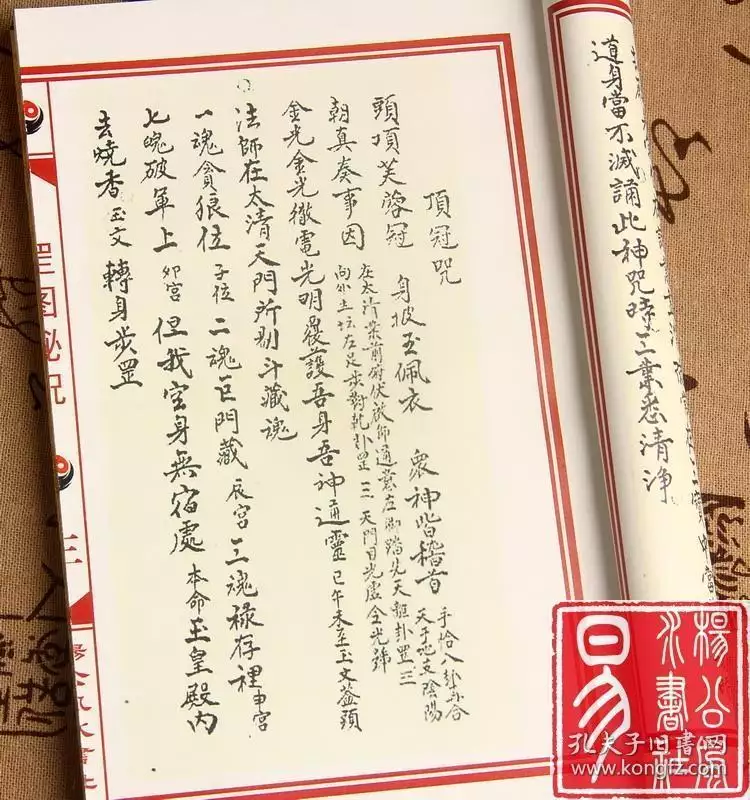 道身當不滅誦此神咒時三業悉清净
頂冠咒
頭頂芙蓉冠 身披玉佩衣 眾神皆稽首 手恰八卦亦合天干地支陰陽
朝真奏事因 在太清案前俯伏啟師通意左脚踏先天離卦罡三向外土坛左足步對乾卦罡三 天門目光處金光號
金光金光徹電光明覆護吾身吾神通靈 巳午未至玉文蓋頭
法師在太清天門所剔斗藏魂
一魂貪狼位 子位 二魂巨門藏 辰宮 三魂祿存裡 申宮
七魄破軍上 卯宮 但我空身無宿處 本命玉皇殿內
去燒香 玉文 轉身步罡
罡图秘咒
三
楊公風水書社
易
孔夫子旧書网
www.kongfz.com